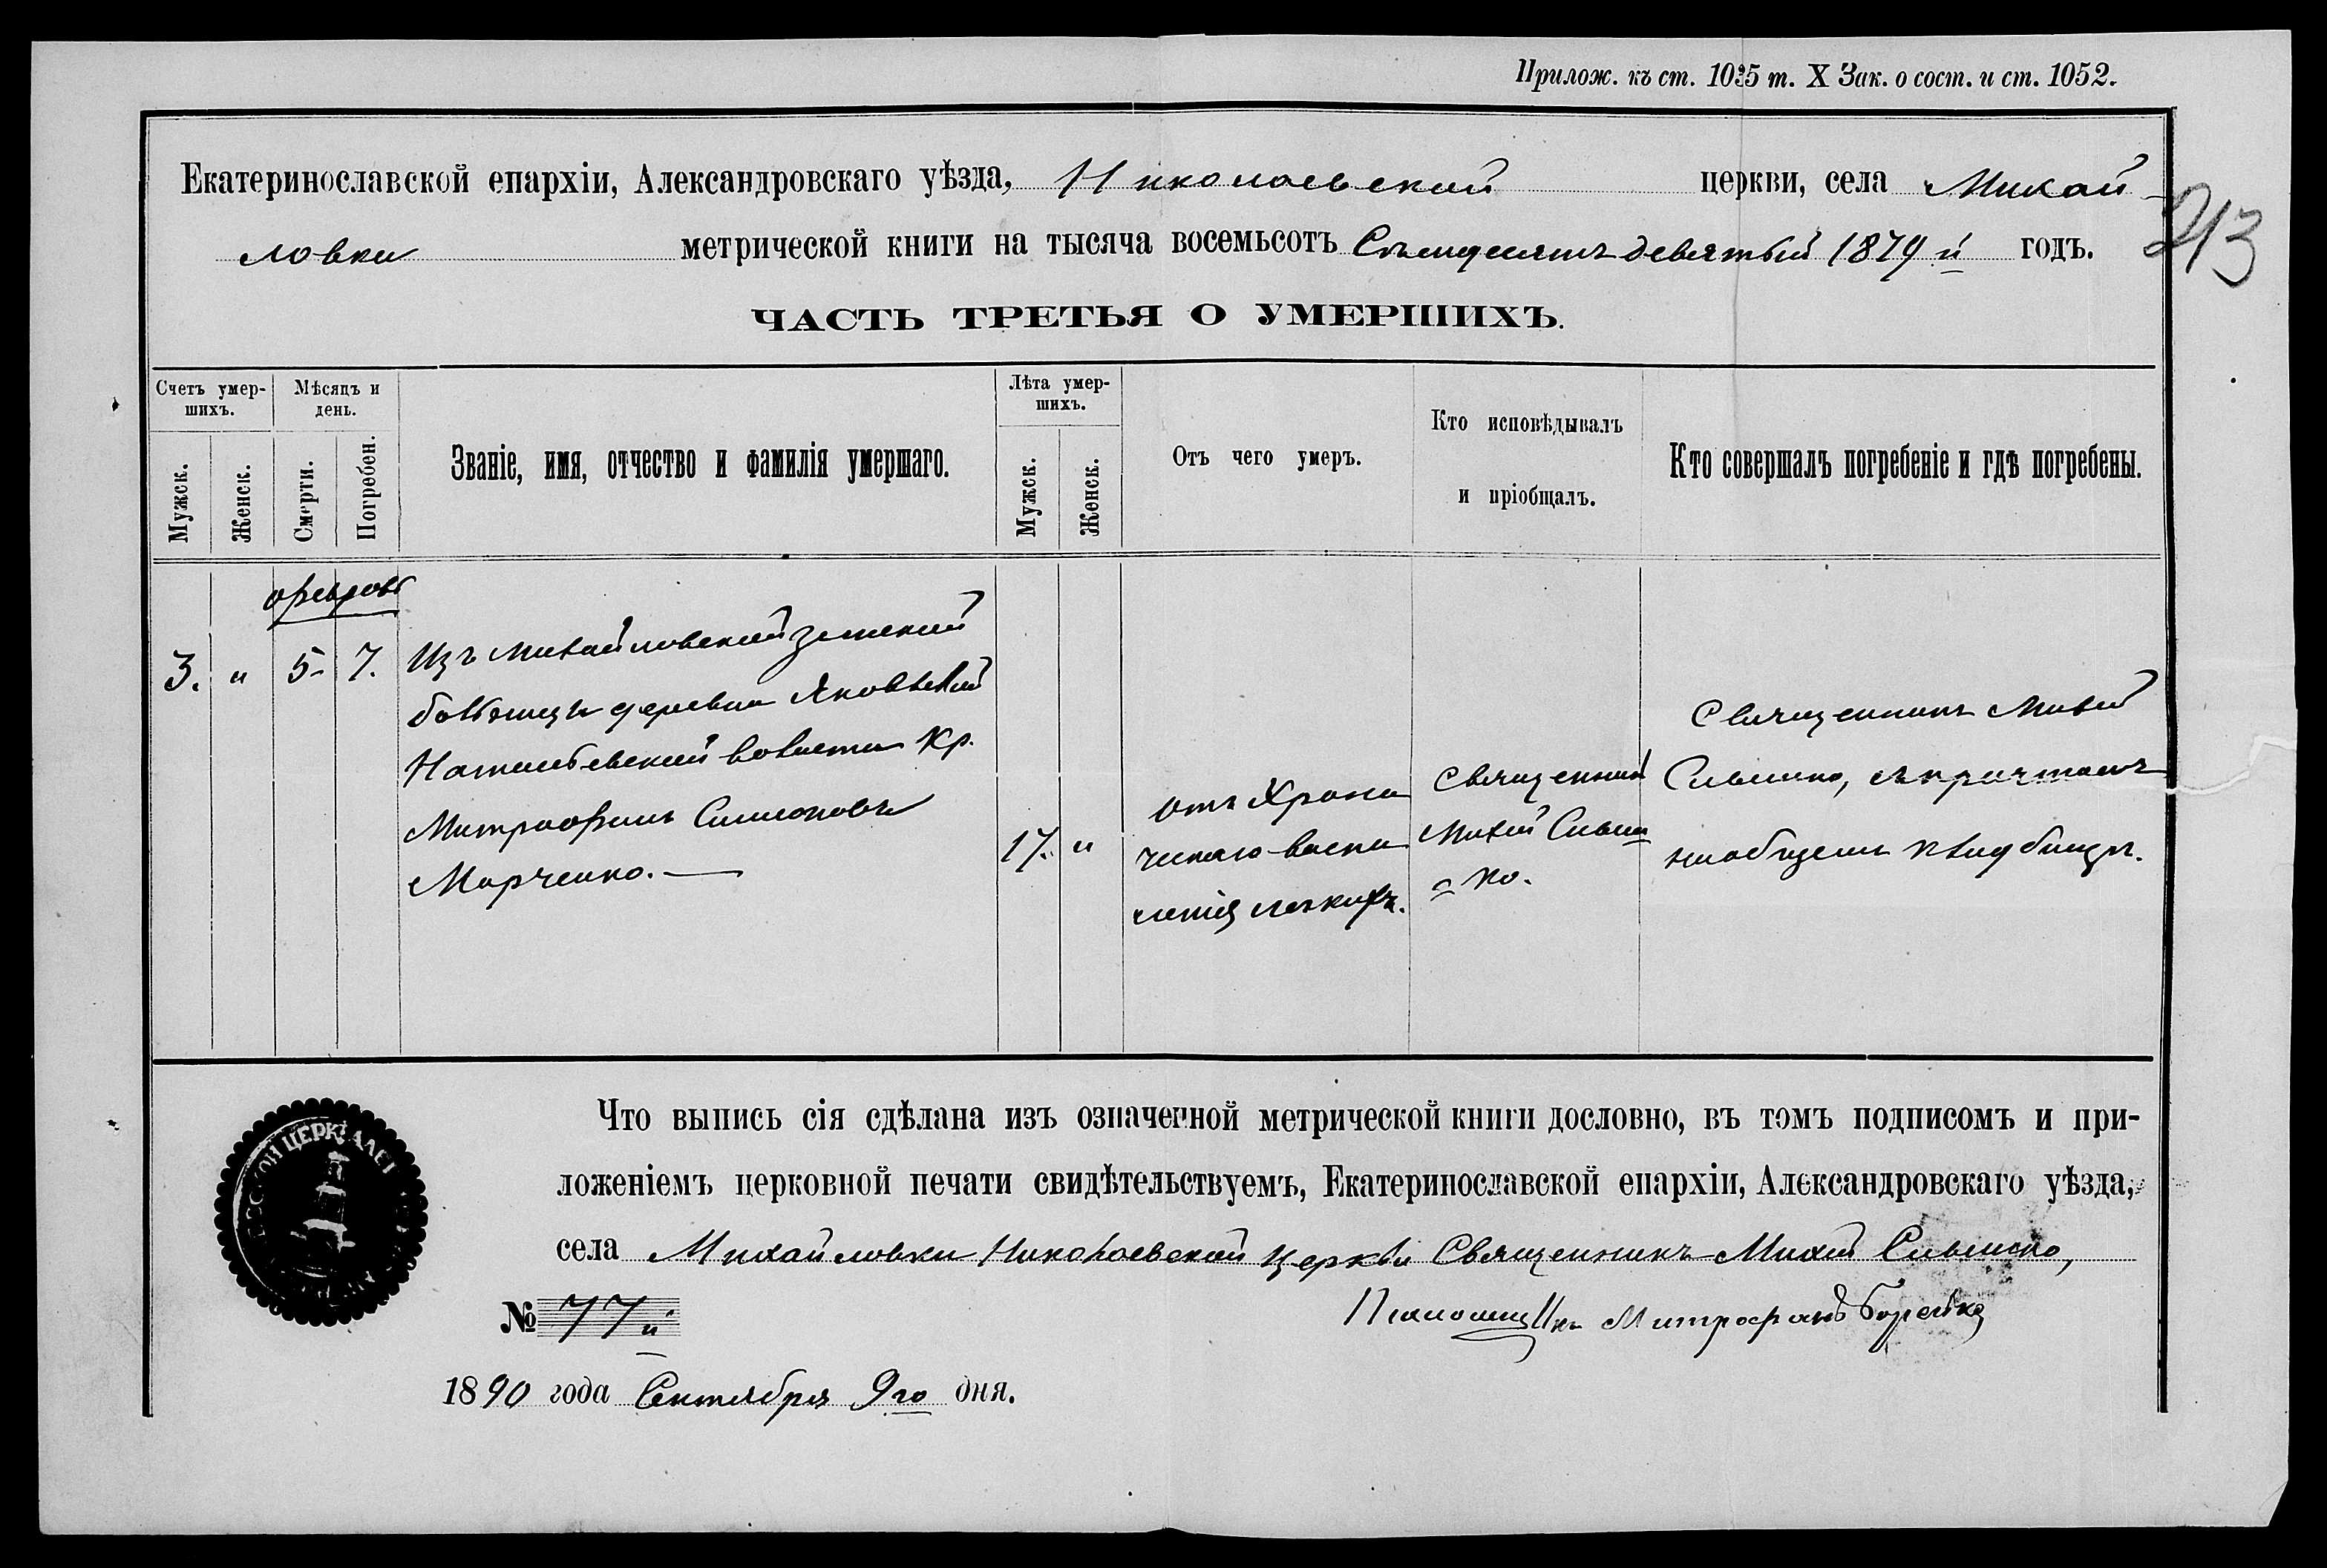 Прилож. къ ст. 1035 т. X Зак. о сост. и ст. 1052.
Екатеринославской епархіи, Александровскаго уѣзда, Николаевской церкви, села Михай-
ловки метрической книги на тысяча восемьсотъ Семьдесятъ девятый 1879 й годъ.
213
ЧАСТЬ ТРЕТЬЯ О УМЕРШИХЪ.
Счетъ умер-
шихъ.
Мужск.
Женск.
Мѣсяцъ и
день.
Смерти.
Погребен.
Званіе, имя, отчество и фамилія умершаго.
Лѣта умер-
шихъ.
Мужск.
Женск.
Отъ чего умеръ.
Кто исповѣдывалъ
и пріобщалъ.
Кто совершалъ погребеніе и гдѣ погребены.
3. " 5 7.
Изъ Михайловской земской
больницы деревни Яковлевкой
волости Кр.
Митрофанъ Симоновъ
Марченко.
17. "
отъ Хрони
ческаго воспа
ленія легкихъ.
Священник
Михей
ко.
Священникъ Михей
съ причтомъ
на общемъ кладбищѣ.
Что выпись сія сдѣлана изъ означенной метрической книги дословно, въ томъ подписомъ и при-
ложеніемъ церковной печати свидѣтельствуемъ, Екатеринославской епархіи, Александровскаго уѣзда,
села Михайловки Николаевской Церкви Священникъ Михей
Псаломщикъ Митрофанъ Борейко
№ 77 й
1890 года Сентября 9го дня.